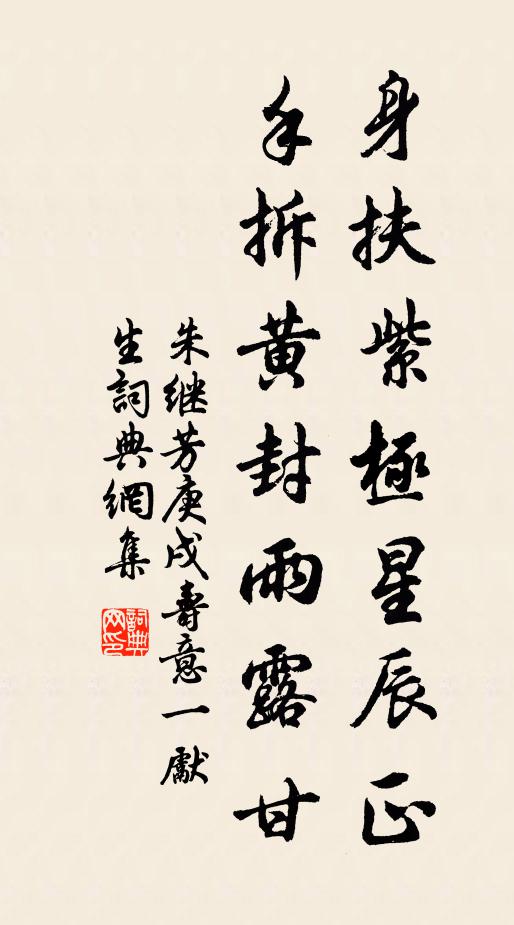 身扶紫極星辰正
手拆黃封雨露甘
朱继芳庚戌壽意一獻
生詞典網集
詞典
网印